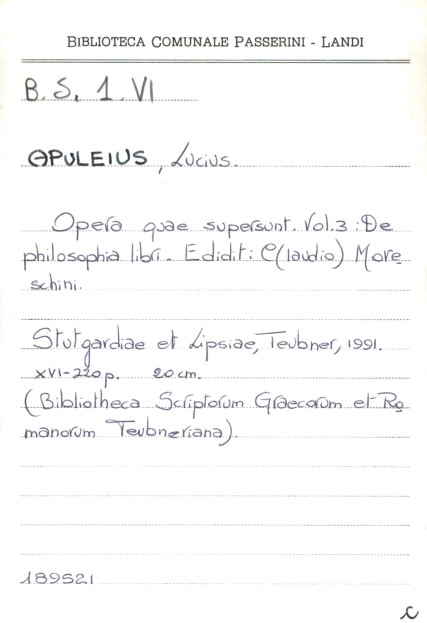 BIBLIOTECA COMUNALE PASSERINI - LANDI
B.S. 1.VI
APULEIUS, Lucius.
Opera quae supersunt. Vol.3 : De
philosophia libri. Edidit: C(laudio) More
schini.
Stutgardiae et Lipsiae, Teubner, 1991.
XVI-220 p. 20 cm.
(Bibliotheca Scriptorum Graecorum et Ro
manorum Teubneriana).
189521
C